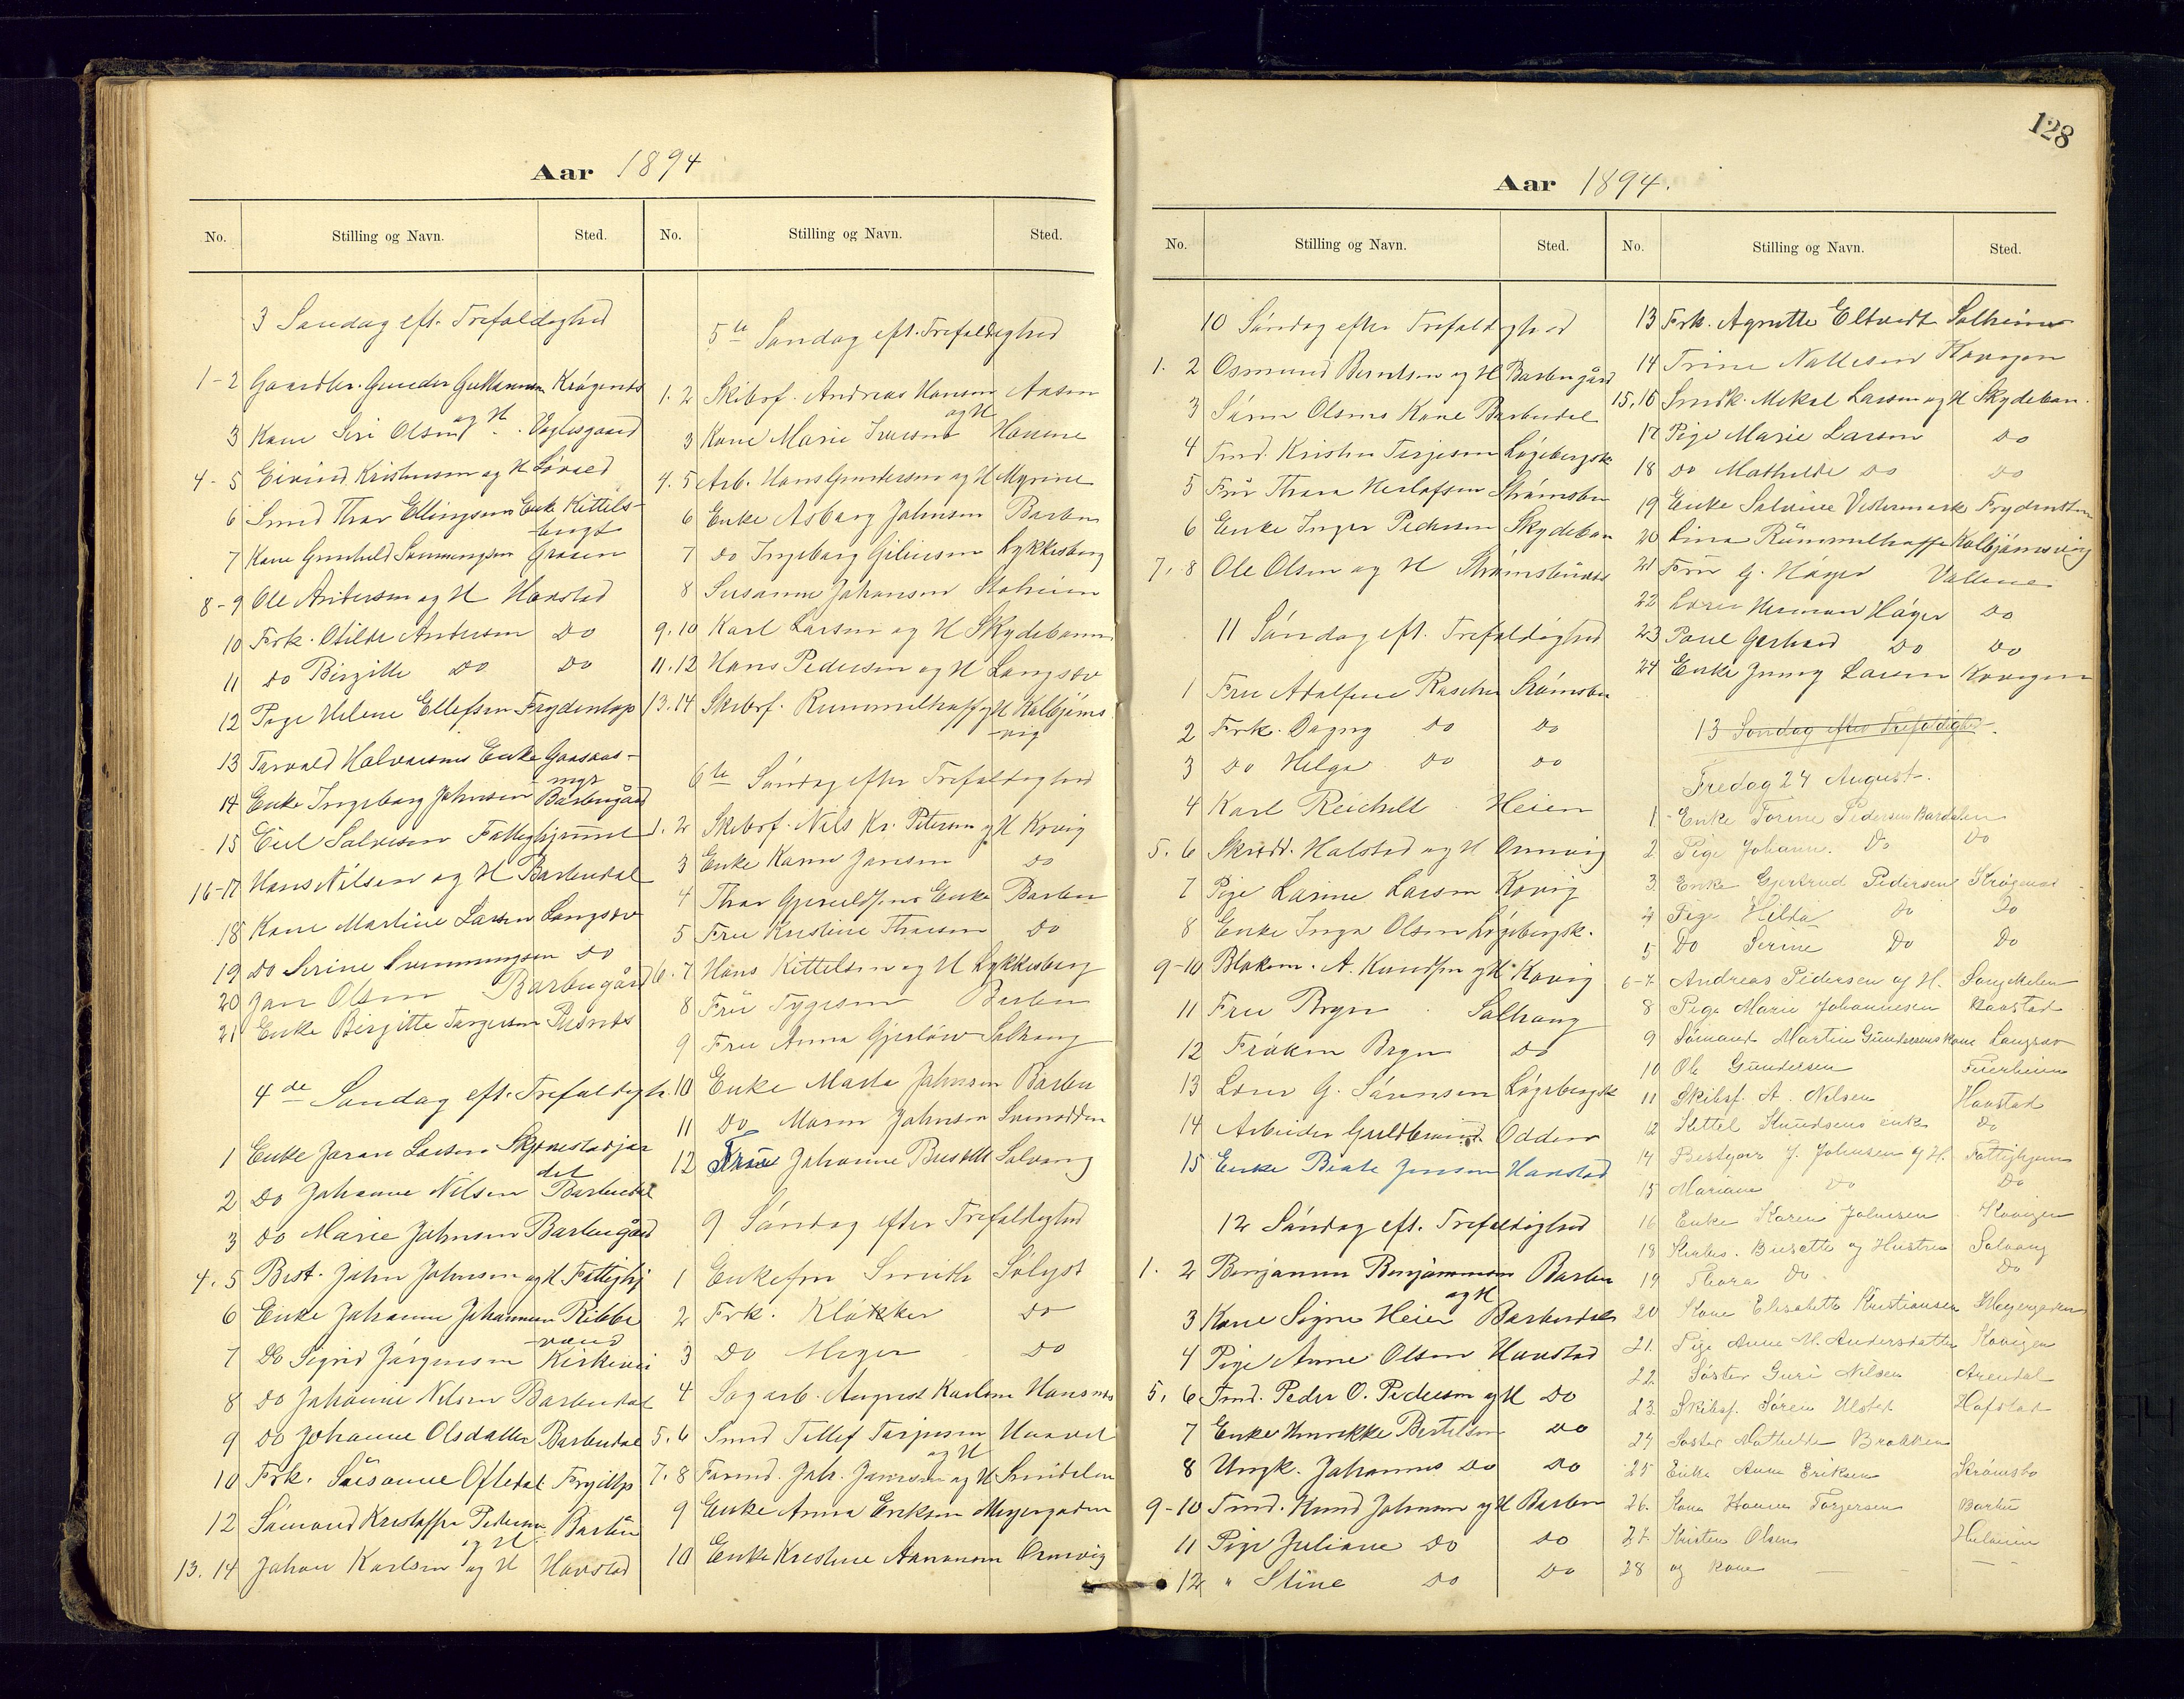 Aar 1894
No. Stilling og Navn. Sted.
3 Søndag eft. Trefoldighed
1-2 Gaardbr. Gunder Gullaksen Krøgenæs
og H
3 Kone Siri Olsen Vaglesgaard
4-5 Eivind Kristensen og H Løvold
6 Smed Thor Ellingsens Enke Kittels-
bugt
7 Kone Gunhild Svenningsen Grøsen
8-9 Ole Andersen og H Havstad
10 Frk. Otilde Andersen Do
11 Do Birgitte Do Do
12 Pige Helene Ellefsen Frydenlyp
13 Tarvald Halvorsens Enke Gaasaas-
myr
14 Enke Ingeborg Johnsen Barbugård
15 Emil Salvesen Fattighjemmet
16-17 Hans Nilsen og H Barbudal
18 Kone Martine Larsen Langsæv
19 Do Serine Svenningsen Do
20 Jan Olsen Barbugård
21 Enke Birgitte Torgersen
4de Søndag eft. Trefoldigh.
1 Enke Joran Larsen
2 Do Johanne Nilsen Barbudal
3 Do Marie Johnsen Barbugård
4.5 Best. John Johnsen og H Fattighj
6 Enke Johanne Johannesen Ribbe
-vand
7 Do Sigrid Jørgensen Kirkevei
8 Do Johanne Nilsen Barbudal
9 Do Johanne Olsdatter Barbudal
10 Frk. Susanne Oftedal Frydlyp
12 Sømand Kristoffer Pedersen Barbu
og H
13.14 Johan Karlsen og H Havstad
No. Stilling og Navn. Sted.
5te Søndag eft. Trefoldighed
1.2 Skibsf. Andreas Hansen Aasen
og H
3 Kone Marie Iversen Hamne
4.5 Arb. Hans Gundersen og H Myrene
6 Enke Asborg Johnsen Barbu
7 Do Ingeborg Giliusen Lykkesborg
8 Susanne Johansen Solheim
9.10 Karl Larsen og H Skydebanen
11.12 Hans Pedersen og H Langsæv
13.14 Skibsf. Rummelhoff og H Kolbjørns
-vig
6te Søndag efter Trefoldighed
1.2 Skibsf. Nils Kr. Petersen og H Kovig
3 Enke Karen Jensen Do
4 Thor Gjeruldsens Enke Barbu
5 Fru Kristine Thorsen Do
6.7 Hans Kittelsen og H Lykkesborg
8 Fru Tygesen Barbu
9 Fru Anna Gjerløw Solvang
10 Enke Marta Johnsen Barbu
11 Do Maren Johnsen Svenodden
12 Frue Johanne Busette Solvang
9 Søndag efter Trefoldighed
1 Enkefru Smith Sølyst
2 Frk. Kløkker Do
3 Do Meyer Do
4 Sagarb. August Karlsen Hansnæs
5.6 Smed Tellef Terjesen
og H
7.8 Tømmd. Joh. Jensen og H Smedalen
9 Enke Anna Eriksen Meyergaden
10 Enke Kristine Aanonsen Ormvig
128
Aar 1894.
No. Stilling og Navn. Sted.
10 Søndag efter Trefoldighed
1.2 Osmund Berntsen og H Barbugård
3 Søren Olsens Kone Barbudal
4 Tmd. Kristen Terjesen Løgebergsk
5 Fru Thora Herlofsen Strømsbu
6 Enke Inger Pedersen Skydeban
7.8 Ole Olsen og H
11 Søndag eft. Trefoldighed
1 Fru Adolfine Rascher Strømsbu
2 Frk. Dagny Do Do
3 Do Helga Do Do
4 Karl Reichelt Heien
5.6 Skrædd. Halstad og H Ormvig
7 Pige Larine Larsen Kovig
8 Enke Inga Olsen Løgebergsk.
9-10 Blokkm. A. Knudsen og H Kovig
11 Fru Bryn Solvang
12 Frøken Bryn Do
13 Lærer G. Sørensen Løgebergsk
14 Arbeider Guldbrand Odden
15 Enke Beate Jensen Havstad
12 Søndag eft. Trefoldighed
1.2 Benjamin Benjaminsen Barbu
og H
3 Kone Signe Heier Barbudal
4 Pige Anne Olsen Havstad
5.6 Tmd. Peder O. Pedersen og H Do
7 Enke Henrekke Bertelsen Do
8 Ungk. Johannes Do Do
9-10 Tmd. Knud Johnsen og H Barbu
11 Pige Juliane Do Do
12 " Stine Do Do
No. Stilling og Navn. Sted.
13 Frk. Agnette Eltvedt Solheim
14 Trine Nallesen Kovigen
15.16 Smedk. Mekal Larsen og H Skydeban.
17 Pige Marie Larsen Do
18 Do Mathilde Do Do
19 Enke Salvine Vestermark
20 Lina Rummelhoff Kolbjørnsvig
21 Fru G. Høyer Vallene
22 Lærer Herman Høyer Do
23 Poul Gerhard Do Do
24 Enke Jenny Larsen Kovigen
13 Søndag efter Trefoldighed.
Fredag 24 August.
1 Enke Torine Pedersen Bardalen
2 Pige Johann. Do Do
3. Enke Gjertrud Pedersen Krøgenæs
4 Pige Hilda Do Do
5 Do Serine Do Do
6-7 Andreas Pedersen og H.
8 Pige Marie Johannesen Havstad
9 Sømand Martin Gundersens kone Langsæv
10 Ole Gundersen
11 Skibsf. A. Nilsen Havstad
12 Kittel Knudsens enke Do
14 Bestyrer J. Johnsen og H. Fattighjem
15 Mariane Do Do
16 Enke Karen Johnsen Kovigen
18 Busette og Hustru Solvang
19 Thora Do Do
20 Kone Elisabeth Kristiansen Meyergaden
21. Pige Anne M. Andersdatter Kovigen
22. Søster Guri Nilsen Arendal
23. Skibsf. Søren Ulstad Hafstad
24 Søster Mathilde Brakken
25 Enke Anne Eriksen Strømsbo
26. Kona Hanna Torgersen Barbu
27. Kristen Olsen
28 og kone — —